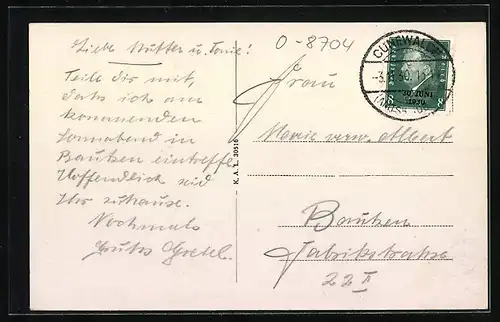 O-8704
Liebe Mutter u. Tonie!
Teile dir mit,
dahs ich am
kommenden
Sonnabend in
Bautzen eintreffe
Hoffendlich seid
Ihr zuhause.
Nochmals
Gruhs Gretel.
K. A. L. 30510
CUNEWALDE
30. JUNI
1930
8
Frau
Marie verw. Albert
Bautzen
Fabrikstrahse
22 II